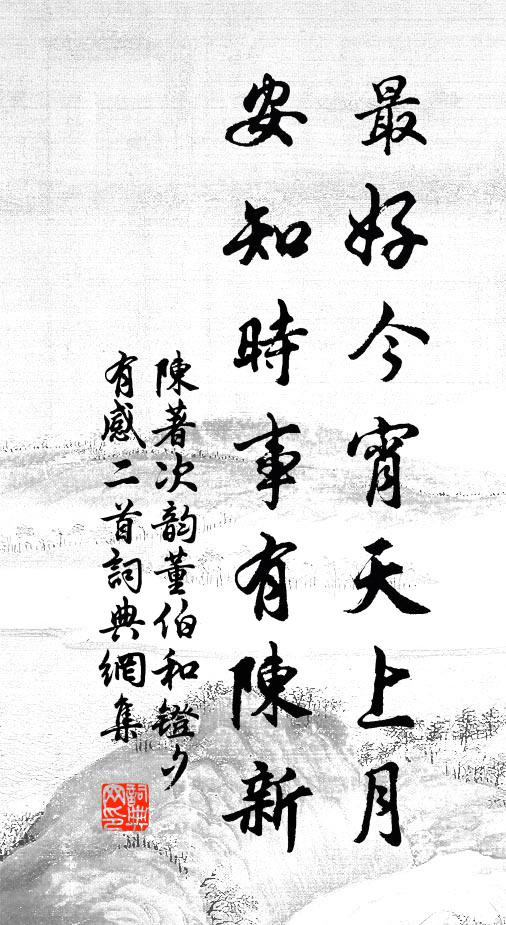 最好今宵天上月
安知時事有陳新
陳著次韵董伯和鐙夕
有感二首詞典網集
詞典网印